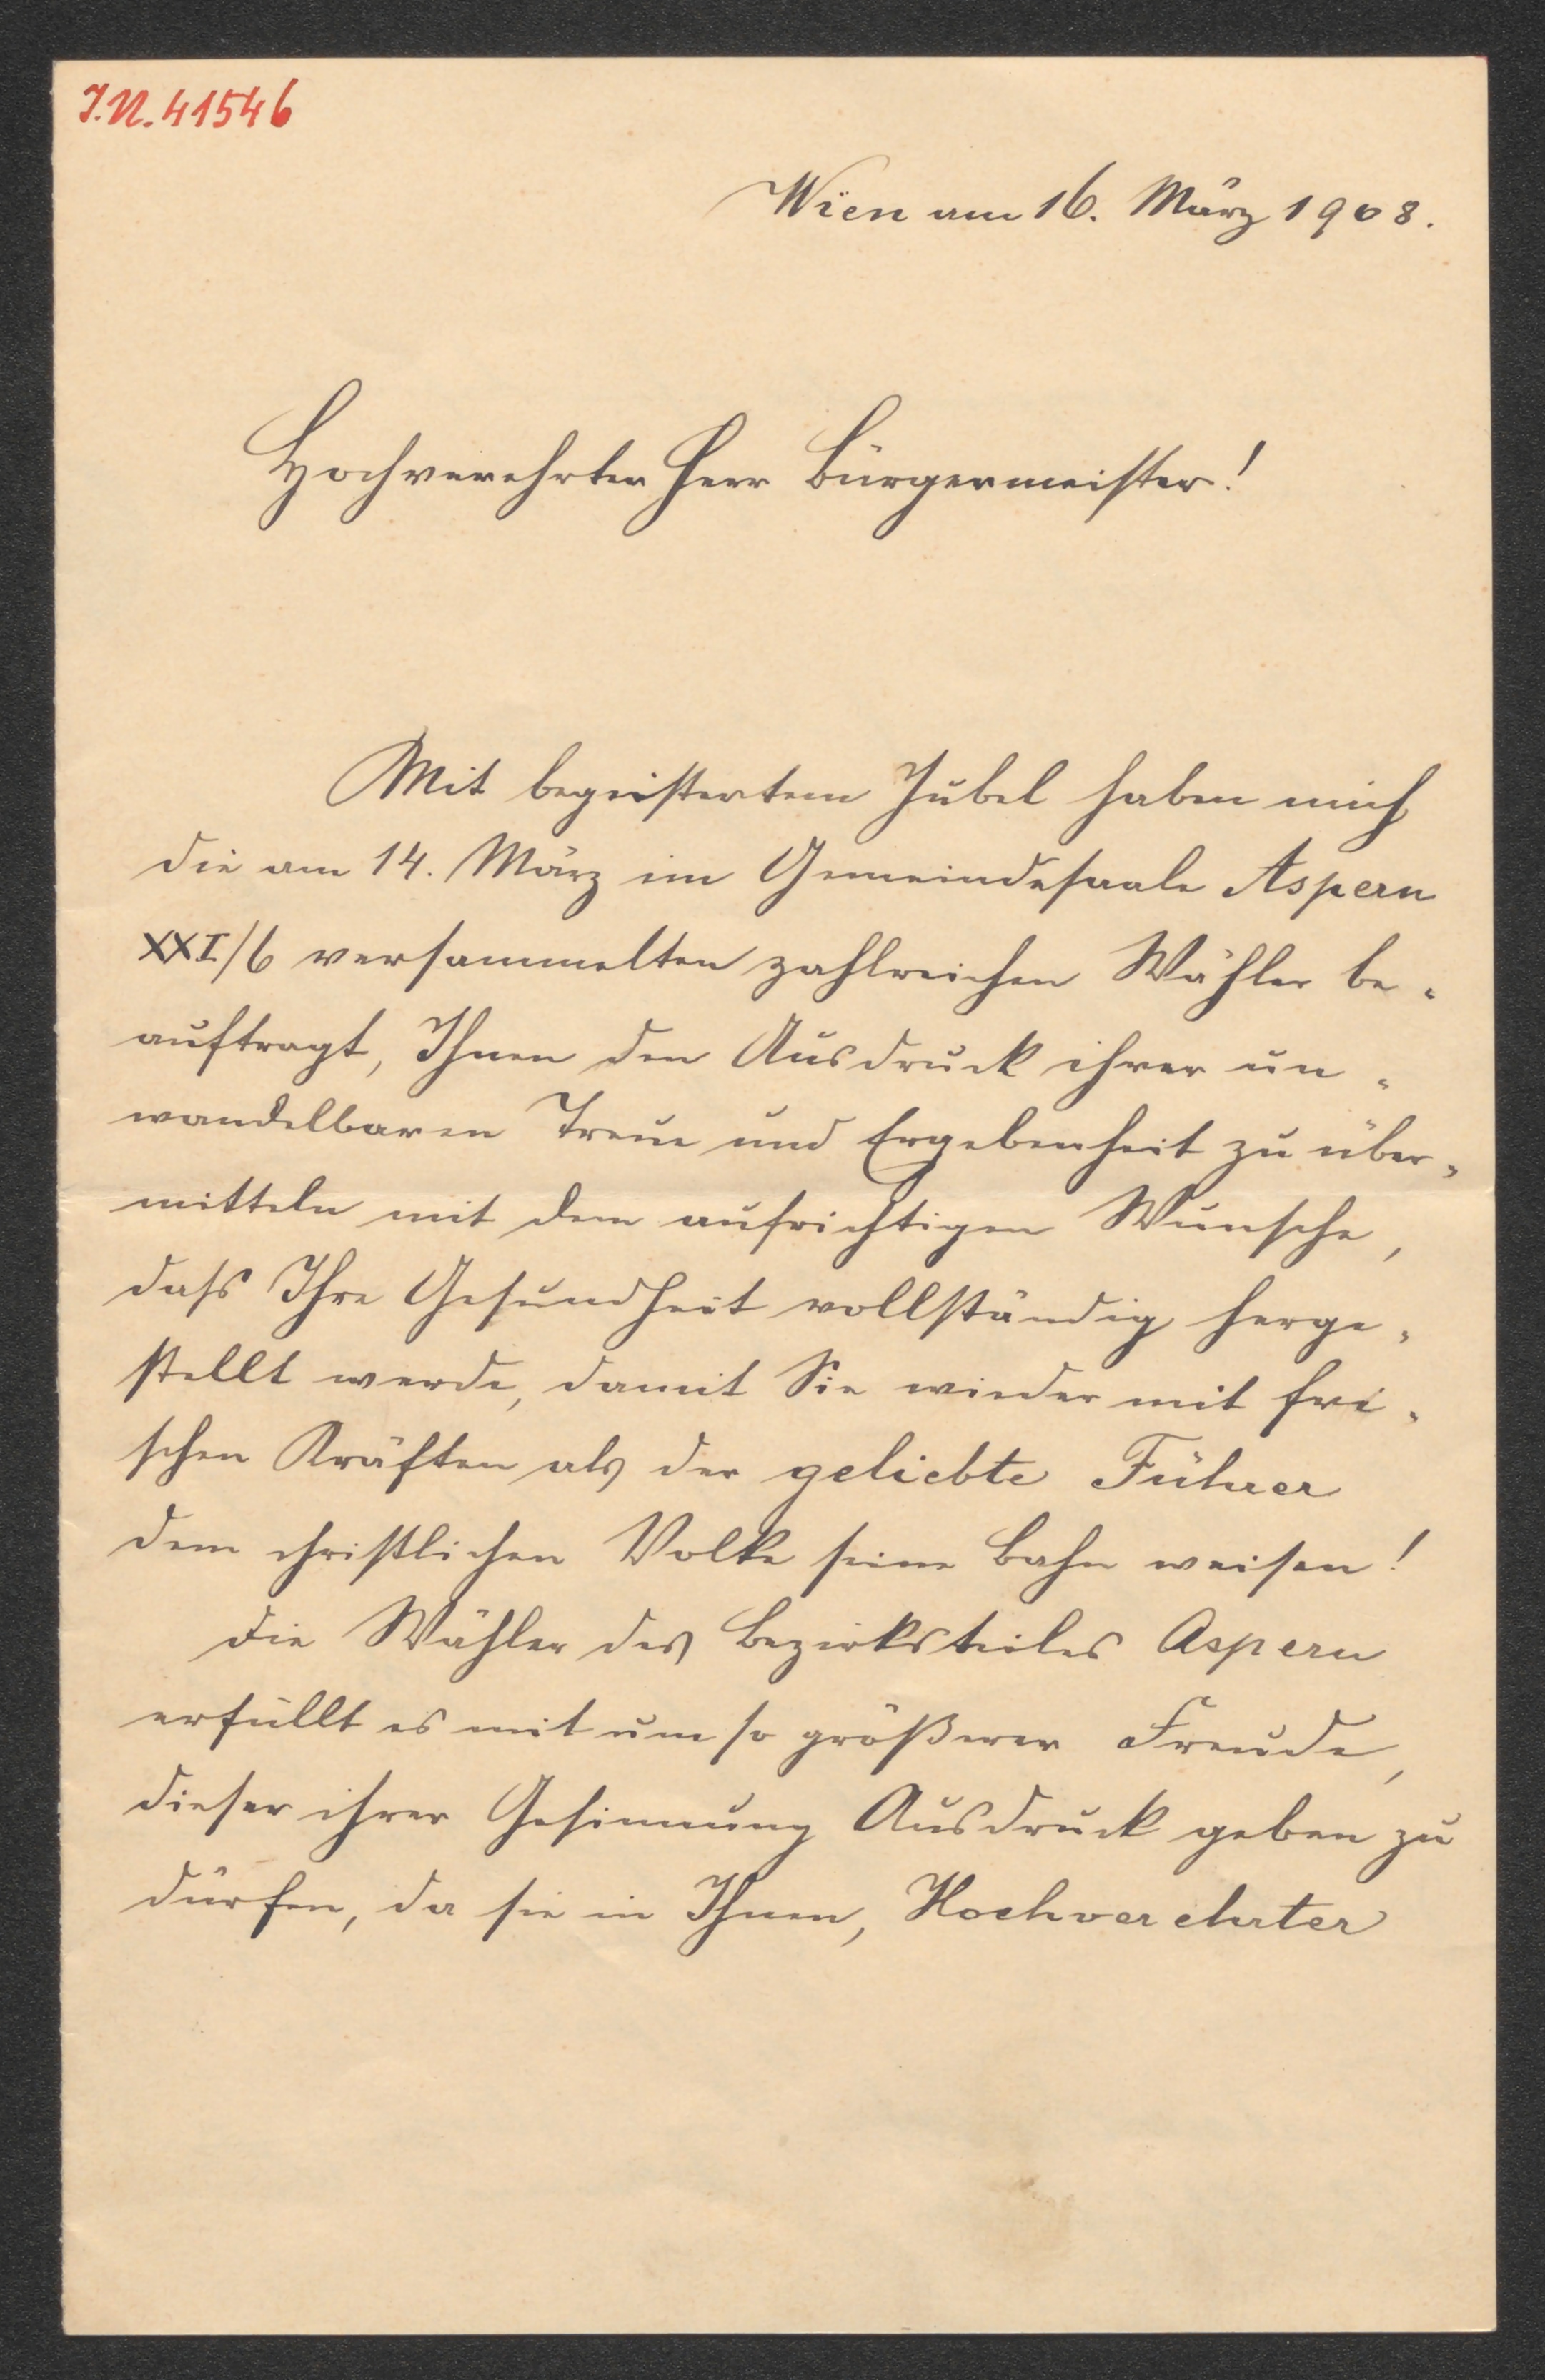 I.N. 41546
Wien am 16. März 1908.
Hochverehrter Herr Bürgermeister!
Mit begeistertem Jubel haben mich
die am 14. März im Gemeindesaale Aspern
XXI/6 versammelten zahlreichen Wähler be-
auftragt, Ihnen den Ausdruck ihrer un-
wandelbaren Treue und Ergebenheit zu über-
mitteln mit dem aufrichtigen Wunsche,
dass Ihre Gesundheit vollständig herge-
stellt werde, damit Sie wieder mit fri-
schen Kräften als der geliebte Führer
dem christlichen Volke seine Bahn weisen!
Die Wähler des Bezirksteiles Aspern
erfüllt es mit um so größerer Freude,
dieser ihrer Gesinnung Ausdruck geben zu
dürfen, da sie in Ihnen, Hochverehrter